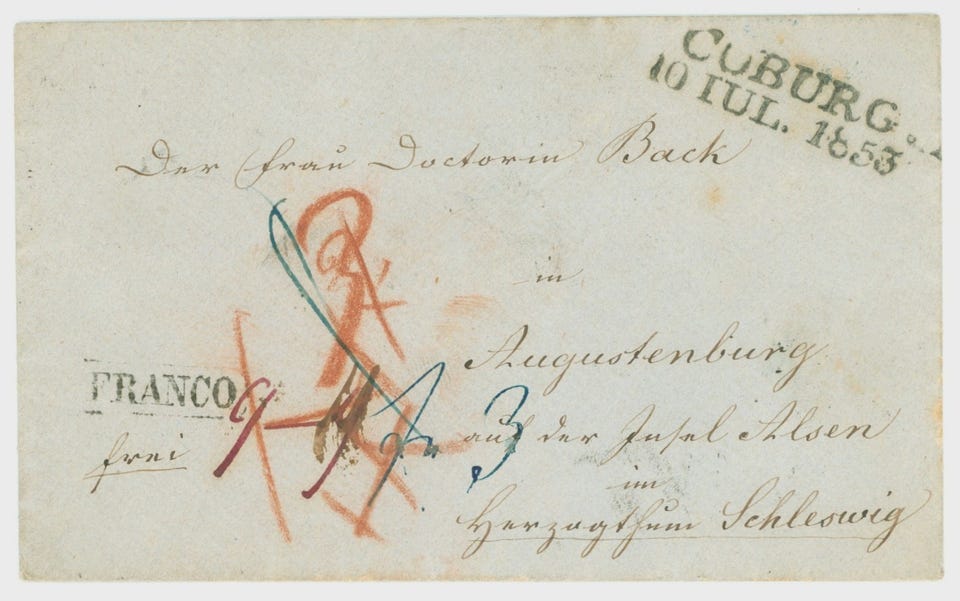 COBURG.
10 IUL. 1853
Der Frau Doctorin Back
in
Augustenburg
auf der Insel Alsen
im
Herzogthum Schleswig
FRANCO
frei
3